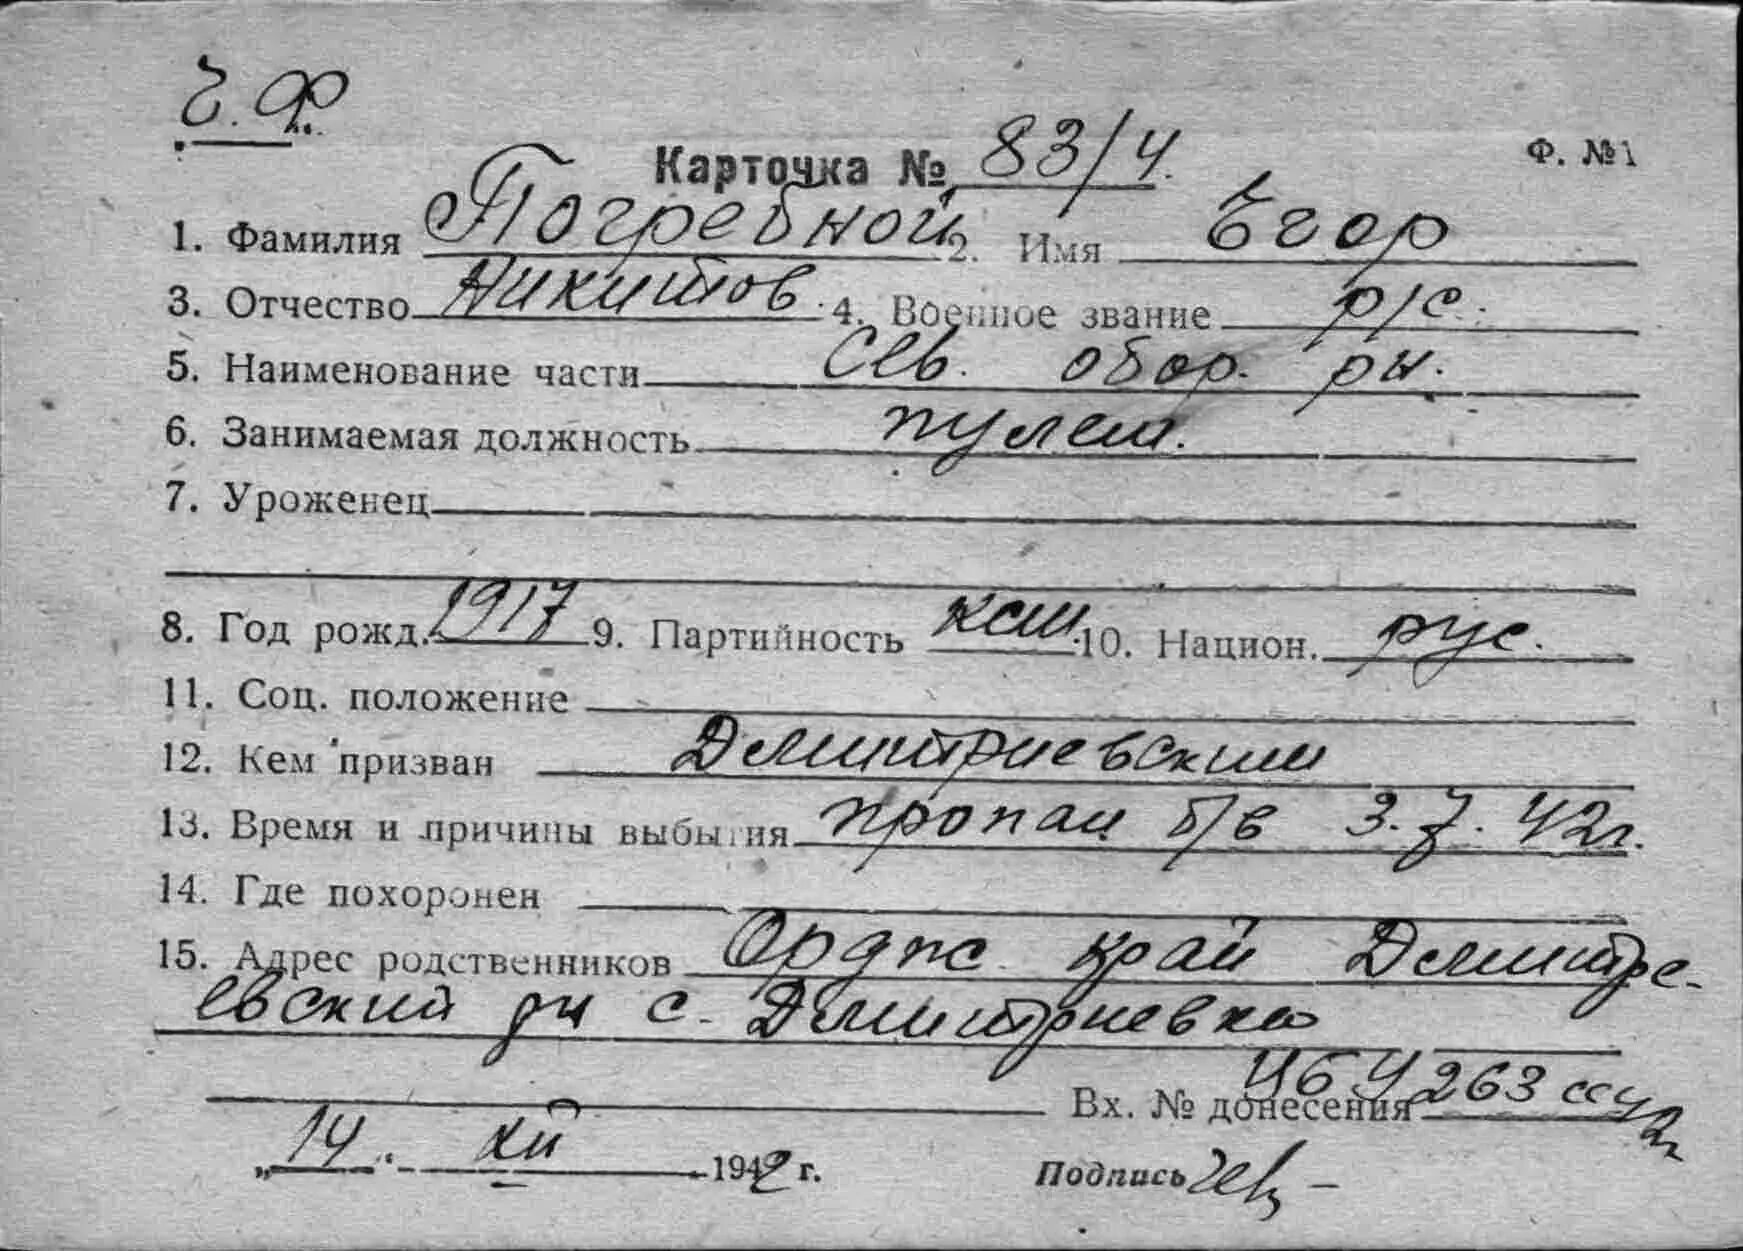 Ч.Ф.
Карточка № 83/4. Ф. №1
1. Фамилия Погребной 2. Имя Егор
3. Отчество Никитов. 4. Военное звание р/с.
5. Наименование части Сев. обор. рн.
6. Занимаемая должность пулем.
7. Уроженец
8. Год рожд. 1917 9. Партийность ксм. 10. Национ. рус.
11. Соц. положение
12. Кем призван Дмитриевским
13. Время и причины выбытия пропал б/в 3.7.42г.
14. Где похоронен
15. Адрес родственников Ордж. край Дмитри-
евский рн с. Дмитриевка
Вх. № донесения 263
„14." XII 1942 г. Подпись